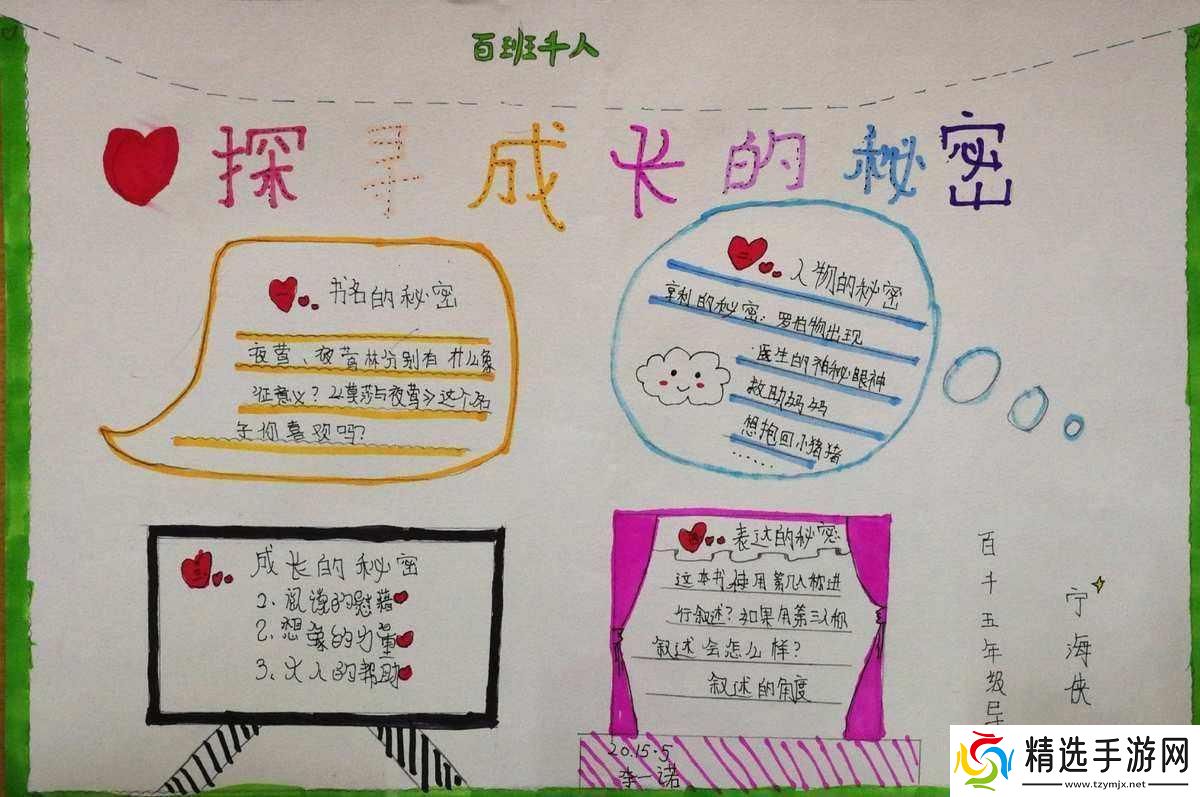 百班千人
探寻成长的秘密
一 书名的秘密
夜莺、夜莺林分别有什么象
征意义?《莫莎与夜莺》这个名
字你喜欢吗?
二 人物的秘密
亨利的秘密:罗伯物出现
医生的神秘眼神
救助妈妈
想抱回小猪猪
……
三 成长的秘密
1、阅读的慰藉
2、想象的力量
3、大人的帮助
四 表达的秘密
这本书使用第几人称进
行叙述?如果用第三人称
叙述会怎么样?
叙述的角度
2015.5
李一诺
百千五年级
宁海侠
精选手游网
www.tzymjx.net